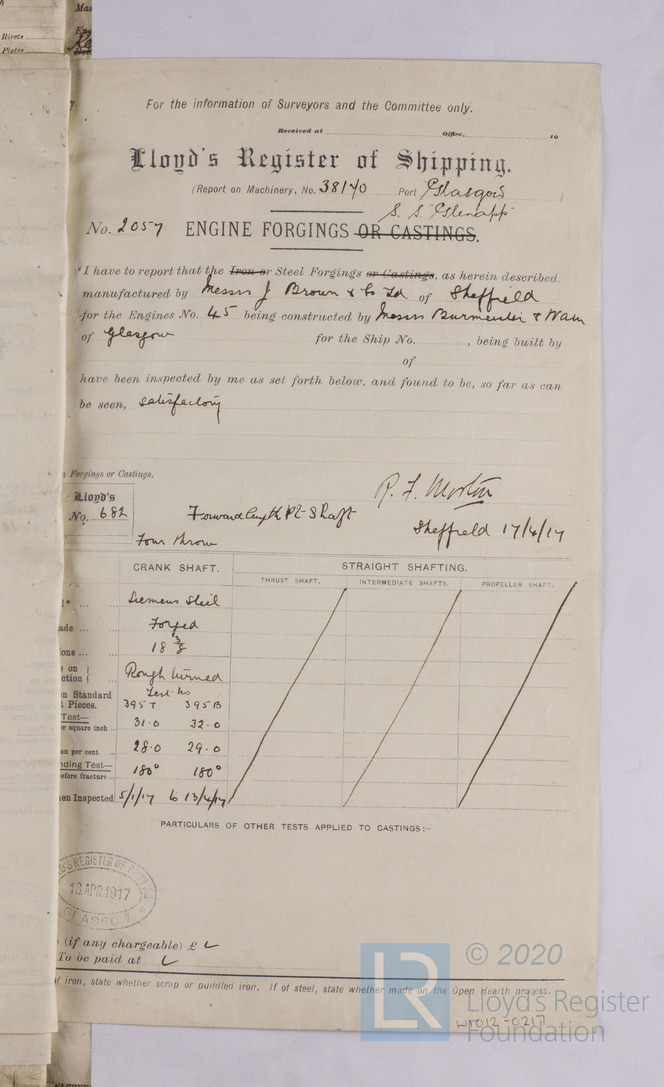 Mac
Eng
Rivets
Plates
For the information of Surveyors and the Committee only.
Received at Office, 19
Lloyd's Register of Shipping.
(Report on Machinery, No. 38140 Port Glasgow)
S. S. Glenapp
No. 2057 ENGINE FORGINGS OR CASTINGS.
I have to report that the Iron or Steel Forgings or Castings, as herein described,
manufactured by Messrs J Brown & Co Ld of Sheffield
for the Engines No. 45 being constructed by Messrs Burmeister & Wain
of Glasgow for the Ship No. , being built by
of
have been inspected by me as set forth below, and found to be, so far as can
be seen, satisfactory
Forgings or Castings.
R. F. Morton
Lloyd's
No. 682 Forward length Pt Shaft Sheffield 17/4/17
Four throw
CRANK SHAFT. STRAIGHT SHAFTING.
THRUST SHAFT. INTERMEDIATE SHAFTS. PROPELLER SHAFT.
Siemens Steel
ade ... Forged
ions ... 18 3/8
on
ction Rough turned
on Standard Test No
t Pieces. 395T 395B
Test—
er square inch 31.0 32.0
on per cent 28.0 29.0
nding Test—
before fracture 180° 180°
en Inspected 5/1/17 to 13/4/17
PARTICULARS OF OTHER TESTS APPLIED TO CASTINGS:—
D'S REGISTER OF SHIPPING
19 APR. 1917
GLASGOW
(if any chargeable) £
To be paid at
of iron, state whether scrap or puddled iron. If of steel, state whether made on the Open Hearth process.
LR
© 2020
Lloyd's Register
Foundation
W1012-0217